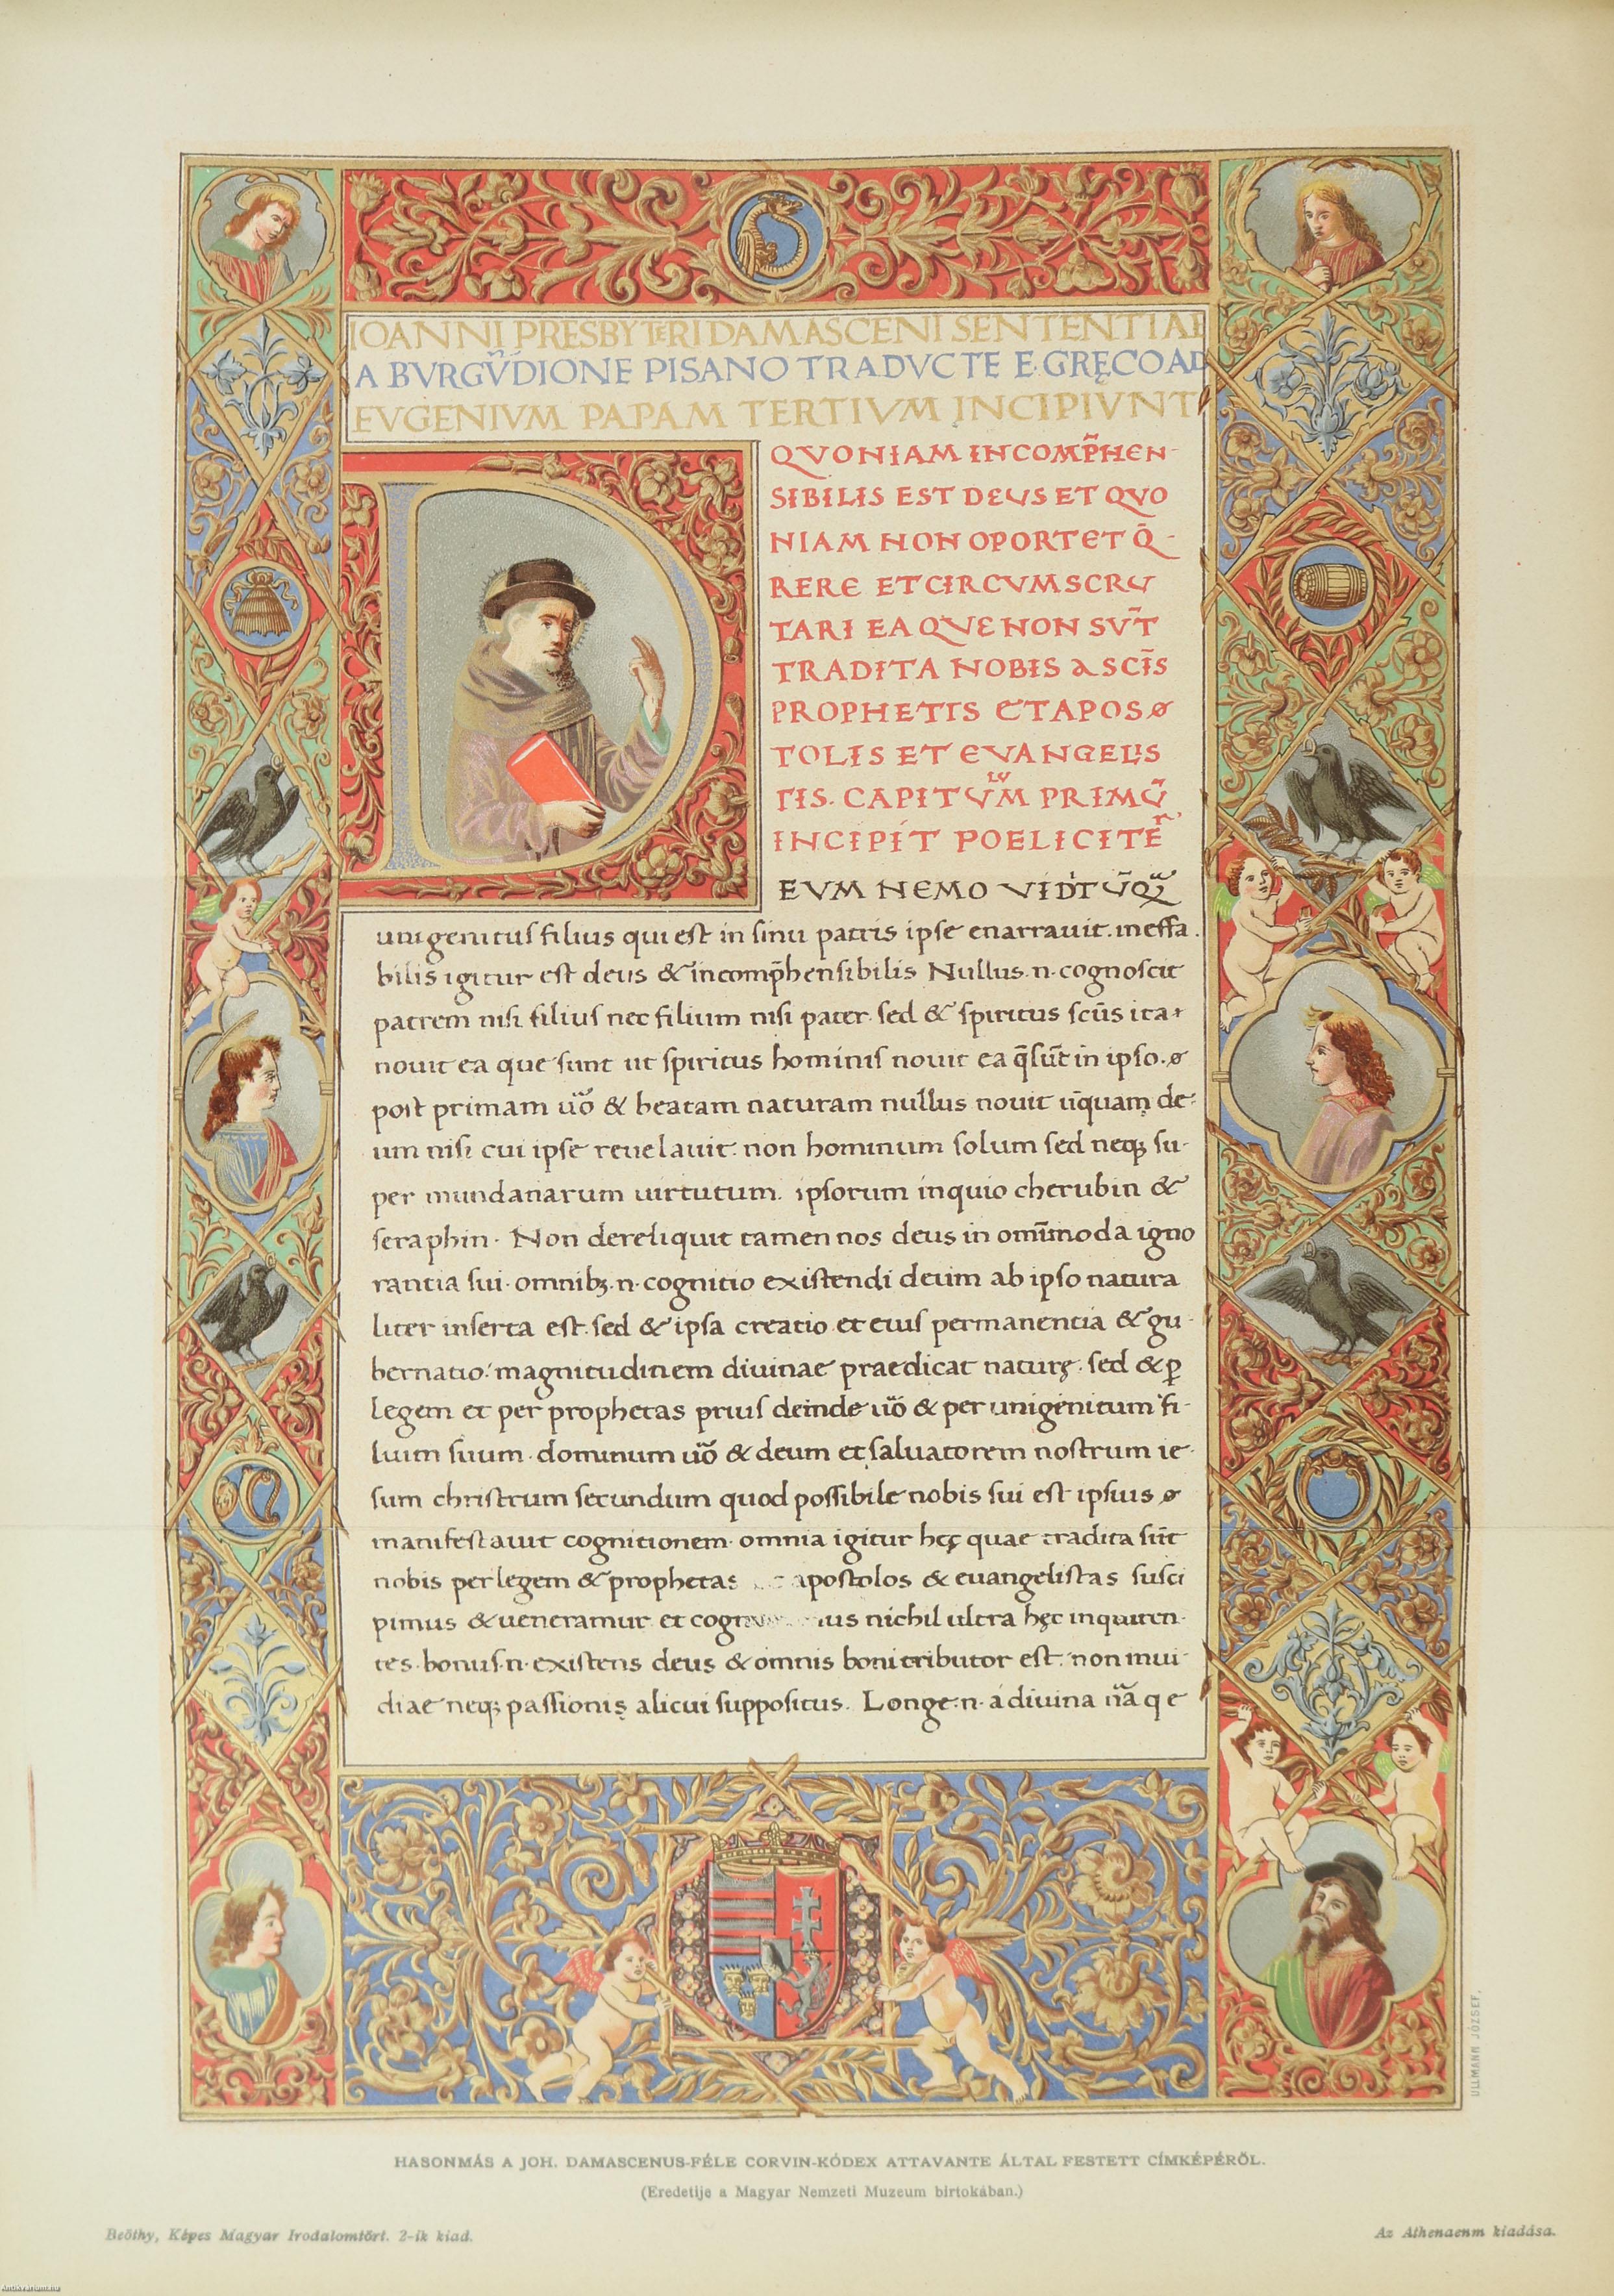 IOANNI PRESBYTERI DAMASCENI SENTENTIAE
A BVRGŪDIONE PISANO TRADVCTE E GRĘCO AD
EVGENIVM PAPAM TERTIVM INCIPIVNT
QVONIAM INCOMP̄HEN-
SIBILIS EST DEUS ET QVO
NIAM NON OPORTET Q̄-
RERE ET CIRCVMSCRU
TARI EA QVE NON SVT̄
TRADITA NOBIS A SCĪS
PROPHETIS ET APOS
TOLIS ET EVANGELIS
TIS. CAPITVLVM PRIMŪ
INCIPIT
D
EVM NEMO VIDIT
unigenitus filius qui est in sinu patris ipse enarravit. ineffa
bilis igitur est deus & incomp̄hensibilis Nullus .n. cognoscit
patrem nisi filius nec filium nisi pater. sed & spiritus scūs ita
novit ea que sunt ut spiritus hominis novit ea q̄ sūt in ipso.
post primam ūo & beatam naturam nullus novit ūquam de-
um nisi cui ipse revelavit. non hominum solum sed neq; su-
per mundanarum virtutum. ipsorum inquio cherubin &
seraphin. Non dereliquit tamen nos deus in omīmoda igno
rantia sui. omnibȝ .n. cognitio existendi deum ab ipso natura
liter inserta est. sed & ipsa creatio et eius permanentia & gu-
bernatio. magnitudinem divinae praedicat naturę. sed & ꝑ
legem et per prophetas prius deinde ūo & per unigenitum fi-
lium suum. dominum ūo & deum et salvatorem nostrum ie-
sum christum secundum quod possibile nobis sui est ipsius
manifestavit cognitionem. omnia igitur hęc quae tradita sūt
nobis per legem & prophetas apostolos & euangelistas susci
pimus & veneramur et nichil ultra hęc inquiren-
tes. bonus .n. existens deus & omnis boni tributor est. non invi-
diae neq; passionis alicui suppositus. Longe .n. a divina
HASONMÁS A JOH. DAMASCENUS-FÉLE CORVIN-KÓDEX ATTAVANTE ÁLTAL FESTETT CÍMKÉPÉRŐL.
(Eredetije a Magyar Nemzeti Muzeum birtokában.)
Beöthy, Képes Magyar Irodalomtört. 2-ik kiad.
Az Athenaeum kiadása.
ULLMANN JÓZSEF.
Antikvarium.hu